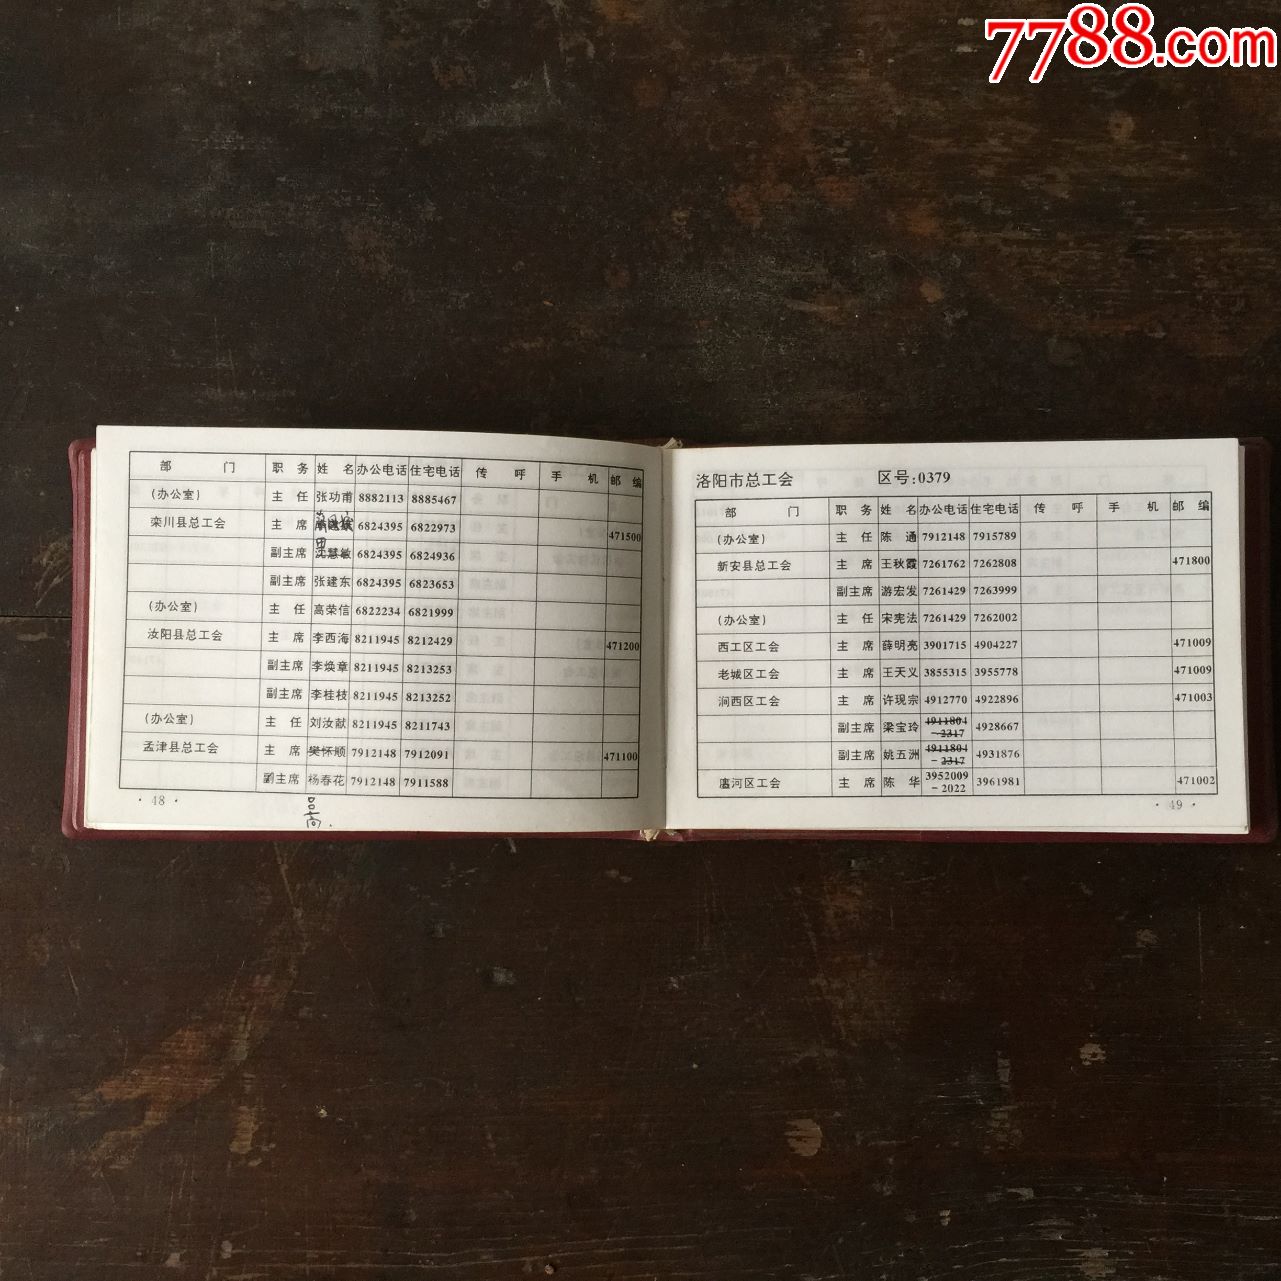 7788.com
部 门 职 务 姓 名 办公电话 住宅电话 传 呼 手 机 邮 编
(办公室) 主 任 张功甫 8882113 8885467
栾川县总工会 主 席 6824395 6822973 471500
副主席 沈慧敏 6824395 6824936
副主席 张建东 6824395 6823653
(办公室) 主 任 高荣信 6822234 6821999
汝阳县总工会 主 席 李西海 8211945 8212429 471200
副主席 李焕章 8211945 8213253
副主席 李桂枝 8211945 8213252
(办公室) 主 任 刘汝献 8211945 8211743
孟津县总工会 主 席 樊怀顺 7912148 7912091 471100
副主席 杨春花 7912148 7911588
· 48 ·
洛阳市总工会 区号:0379
部 门 职 务 姓 名 办公电话 住宅电话 传 呼 手 机 邮 编
(办公室) 主 任 陈 通 7912148 7915789
新安县总工会 主 席 王秋霞 7261762 7262808 471800
副主席 游宏发 7261429 7263999
(办公室) 主 任 宋宪法 7261429 7262002
西工区工会 主 席 薛明亮 3901715 4904227 471009
老城区工会 主 席 王天义 3855315 3955778 471009
涧西区工会 主 席 许现宗 4912770 4922896 471003
副主席 梁宝玲 4911804-2317 4928667
副主席 姚五洲 4911804-2317 4931876
瀍河区工会 主 席 陈 华 3952009-2022 3961981 471002
· 49 ·